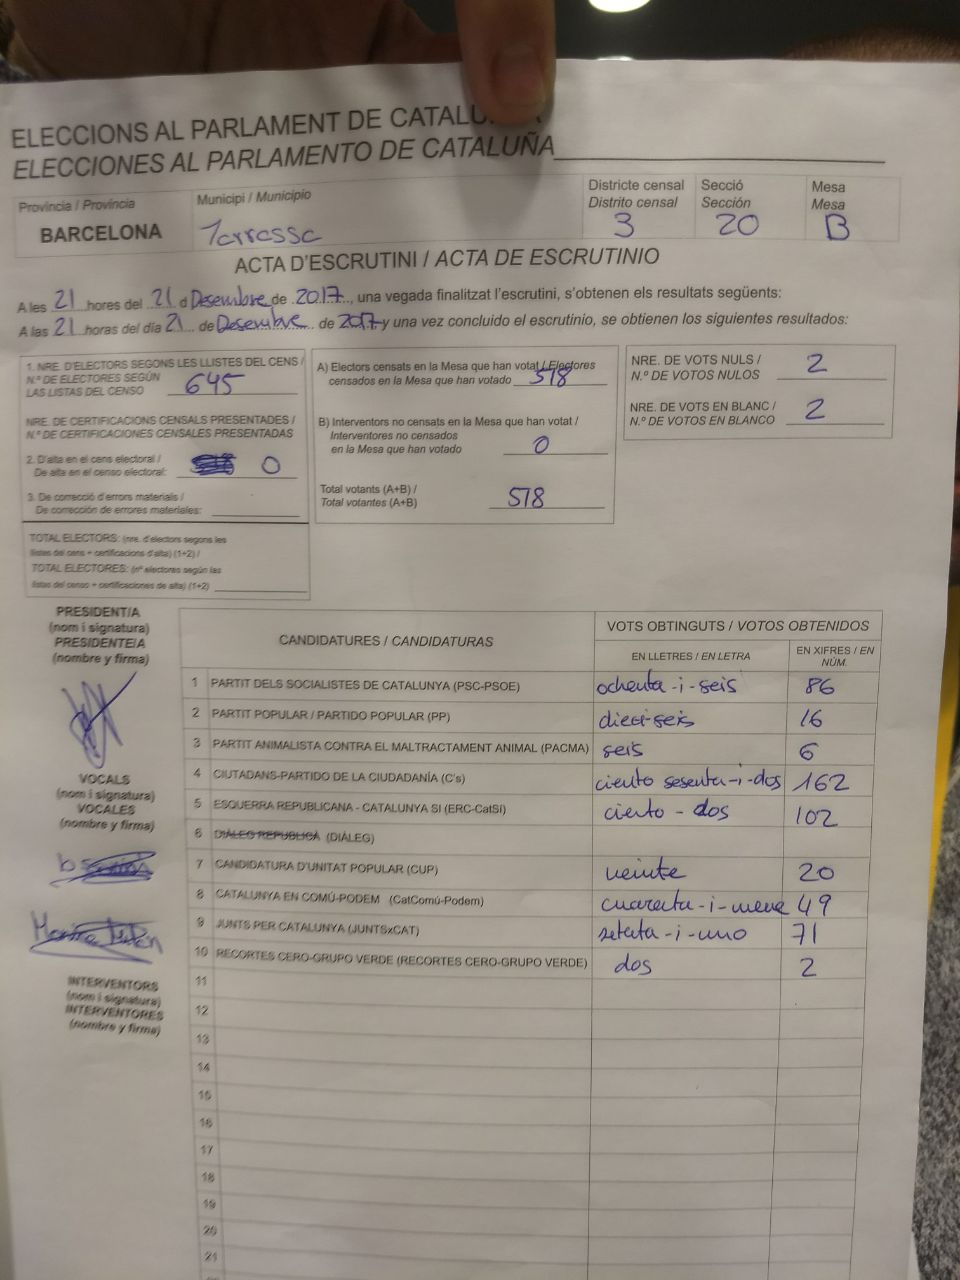 ELECCIONS AL PARLAMENT DE CATALU
ELECCIONES AL PARLAMENTO DE CATALUÑA
Provincia / Provincia
BARCELONA
Municipi / Municipio
Terrassa
Districte censal
Distrito censal
3
Secció
Sección
20
Mesa
Mesa
B
ACTA D'ESCRUTINI / ACTA DE ESCRUTINIO
A les 21 hores del 21 d Desembre de 2017, una vegada finalitzat l'escrutini, s'obtenen els resultats següents:
A las 21 horas del día 21 de Desembre de 2017 y una vez concluido el escrutinio, se obtienen los siguientes resultados:
1. NRE. D'ELECTORS SEGONS LES LLISTES DEL CENS /
N.º DE ELECTORES SEGÚN
LAS LISTAS DEL CENSO 645
NRE. DE CERTIFICACIONS CENSALS PRESENTADES /
N.º DE CERTIFICACIONES CENSALES PRESENTADAS
2. D'alta en el cens electoral /
De alta en el censo electoral: 0
3. De correcció d'errors materials /
De corrección de errores materiales:
TOTAL ELECTORS: (nre. d'electors segons les
llistes del cens + certificacions d'alta) (1+2) /
TOTAL ELECTORES: (nº electores según las
listas del censo + certificaciones de alta) (1+2)
A) Electors censats en la Mesa que han votat / Electores
censados en la Mesa que han votado 518
B) Interventors no censats en la Mesa que han votat /
Interventores no censados
en la Mesa que han votado 0
Total votants (A+B) /
Total votantes (A+B) 518
NRE. DE VOTS NULS /
N.º DE VOTOS NULOS 2
NRE. DE VOTS EN BLANC /
N.º DE VOTOS EN BLANCO 2
PRESIDENT/A
(nom i signatura)
PRESIDENTE/A
(nombre y firma)
VOCALS
(nom i signatura)
VOCALES
(nombre y firma)
INTERVENTORS
(nom i signatura)
INTERVENTORES
(nombre y firma)
CANDIDATURES / CANDIDATURAS
VOTS OBTINGUTS / VOTOS OBTENIDOS
EN LLETRES / EN LETRA
EN XIFRES / EN NÚM.
1 PARTIT DELS SOCIALISTES DE CATALUNYA (PSC-PSOE) ochenta-i-seis 86
2 PARTIT POPULAR / PARTIDO POPULAR (PP) dieci-seis 16
3 PARTIT ANIMALISTA CONTRA EL MALTRACTAMENT ANIMAL (PACMA) seis 6
4 CIUTADANS-PARTIDO DE LA CIUDADANÍA (C's) ciento sesenta-i-dos 162
5 ESQUERRA REPUBLICANA - CATALUNYA SI (ERC-CatSí) ciento - dos 102
6 DIÀLEG REPUBLICÀ (DIÀLEG)
7 CANDIDATURA D'UNITAT POPULAR (CUP) veinte 20
8 CATALUNYA EN COMÚ-PODEM (CatComú-Podem) 49
9 JUNTS PER CATALUNYA (JUNTSxCAT) 71
10 RECORTES CERO-GRUPO VERDE (RECORTES CERO-GRUPO VERDE) dos 2
11
12
13
14
15
16
17
18
19
20
21